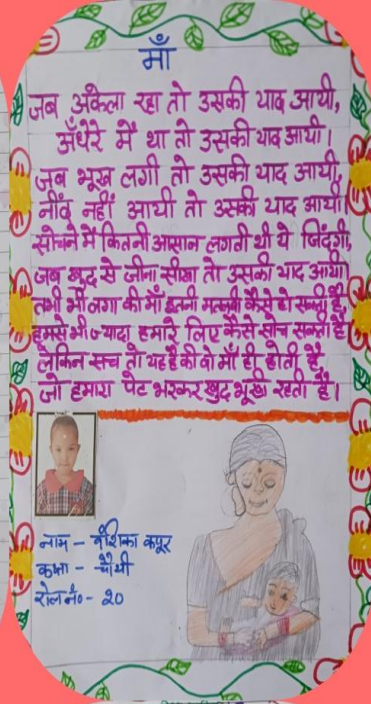 माँ
जब अकेला रहा तो उसकी याद आयी,
अँधेरे में था तो उसकी याद आयी।
जब भूख लगी तो उसकी याद आयी,
नींद नहीं आयी तो उसकी याद आयी।
सोचने में कितनी आसान लगती थी ये जिंदगी,
जब खुद से जीना सीखा तो उसकी याद आयी।
तभी भी लगा की माँ इतनी कैसे हो सकती है,
हमसे भी ज्यादा हमारे लिए कैसे सोच सकती है
लेकिन सच तो यह है की वो माँ ही होती है,
जो हमारा पेट भरकर खुद भूखी रहती है।
नाम - वंशिका कपूर
कक्षा - चौथी
रोल नं०- 20